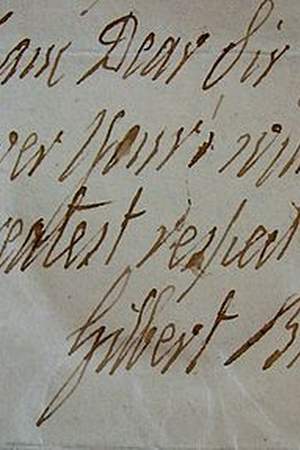 am Dear Sir
ver Your's wi
reatest respect
Gilbert B